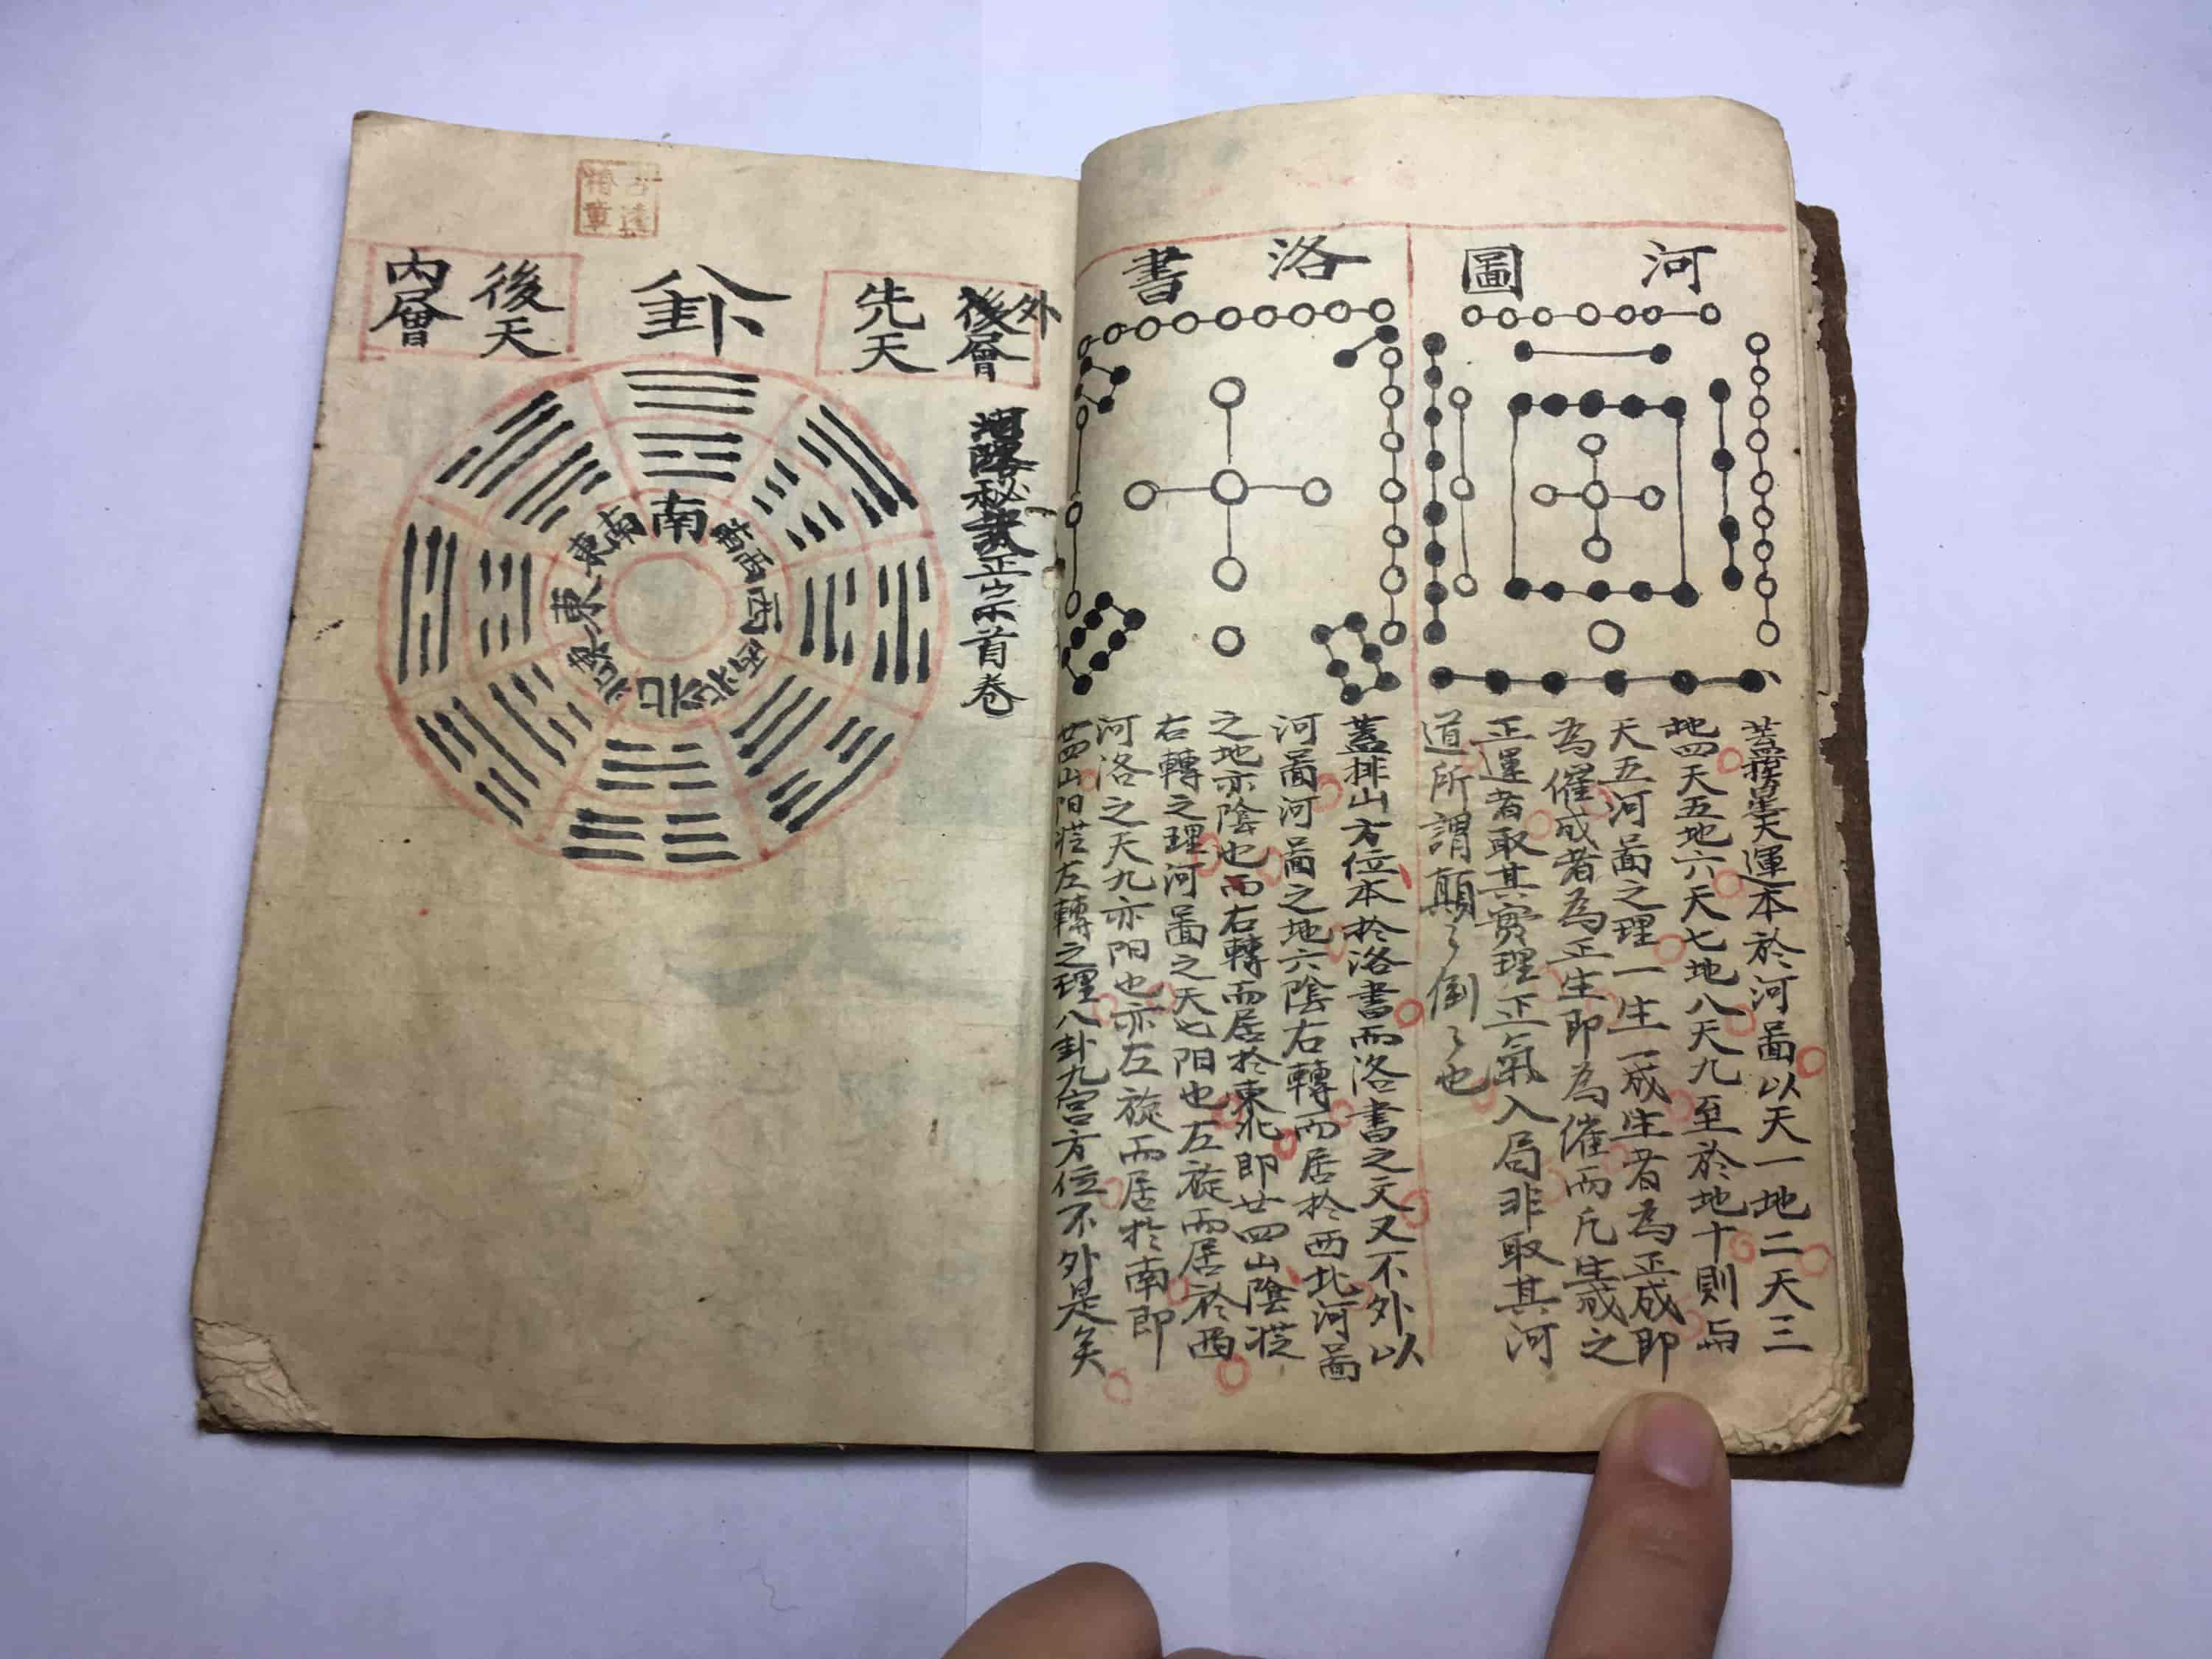 河圖
蓋挨星天運本於河圖以天一地二天三
地四天五地六天七地八天九至於地十則與
天五河圖之理一生一成生者為正成即
為催成者為正生即為催而凡生成之
正運者取其實理正氣入局非取其河
道所謂顛々倒々也
洛書
蓋排山方位本於洛書而洛書之文又不外以
河圖河圖之地六陰右轉而居於西北河圖
之地亦陰也而右轉而居於東北即廿四山陰從
右轉之理河圖之天七阳也左旋而居於西
河洛之天九亦阳也亦左旋而居於南即
廿四山阳從左轉之理八卦九宮方位不外是矣
外
後層
先天
八卦
後天
內層
秘
正宗首卷
南
西南
西
西北
北
東北
東
東南